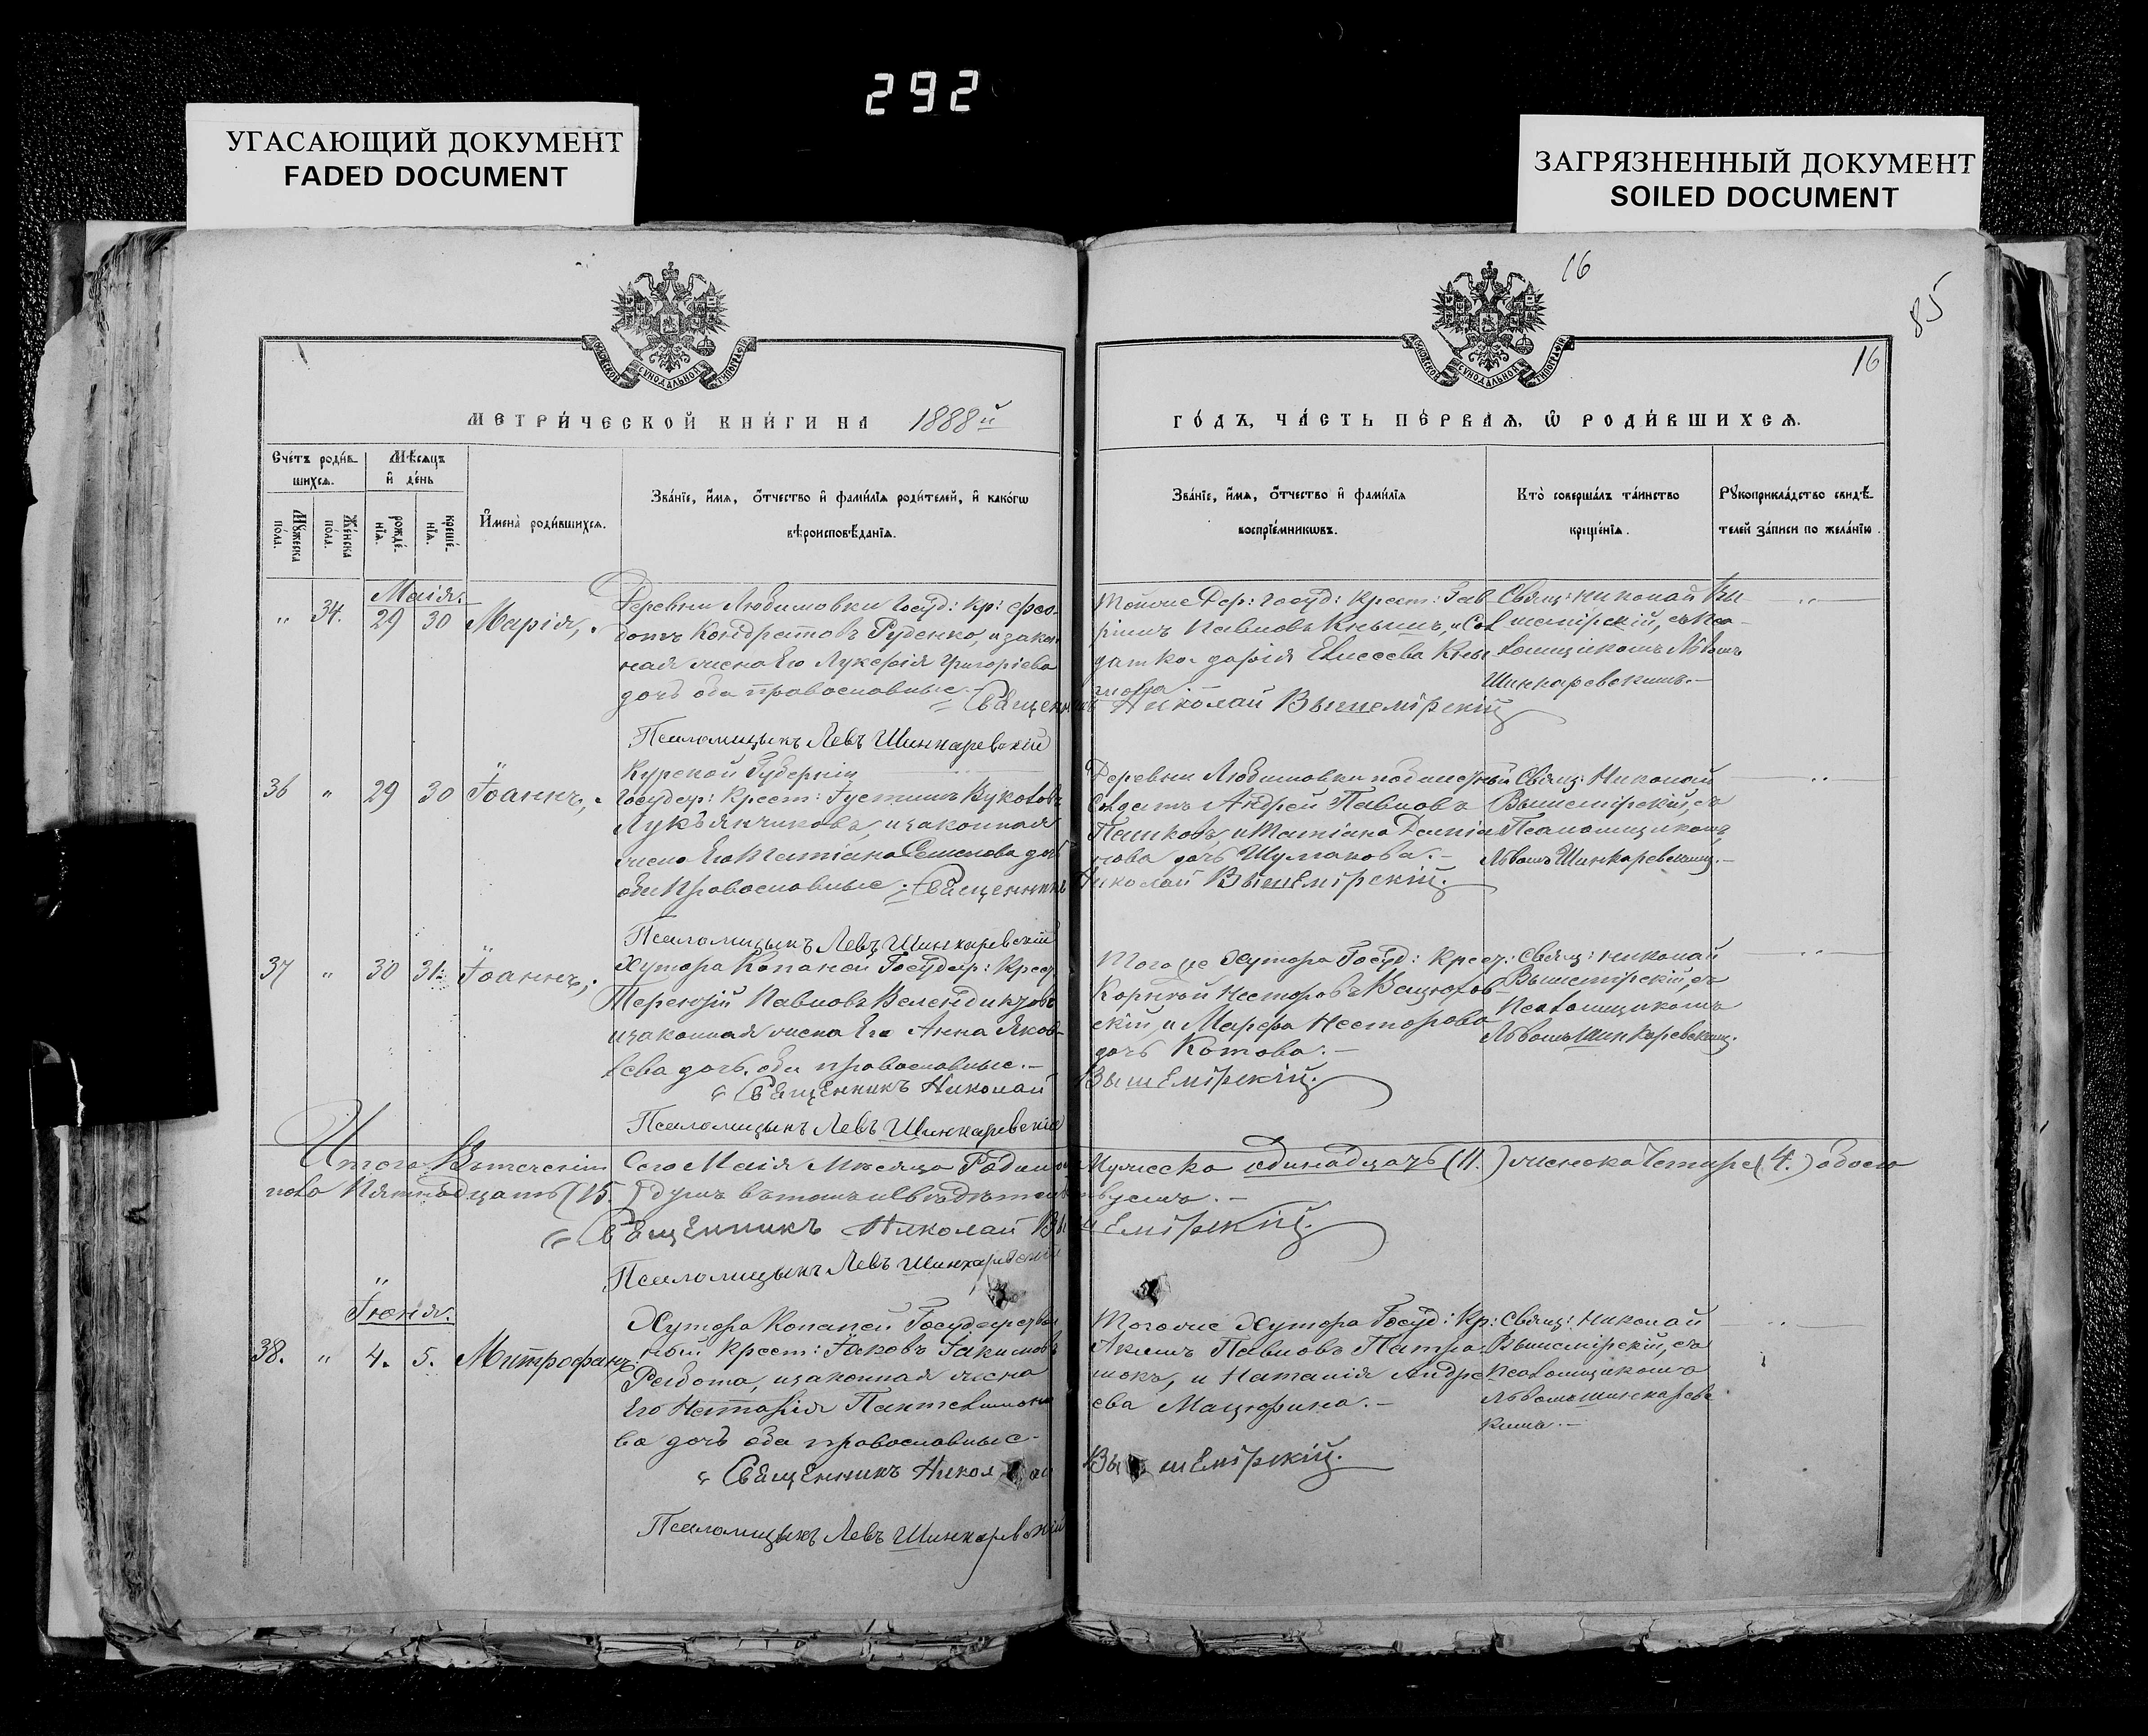 292
УГАСАЮЩИЙ ДОКУМЕНТ
FADED DOCUMENT
ЗАГРЯЗНЕННЫЙ ДОКУМЕНТ
SOILED DOCUMENT
16
85
16
МОСКОВСКОЙ СѴНОДАЛЬНОЙ ТИПОГРАФІИ
МОСКОВСКОЙ СѴНОДАЛЬНОЙ ТИПОГРАФІИ
МЕТРИ́ЧЕСКОЙ КНИ́ГИ НА 1888й
ГО́ДЪ, ЧА́СТЬ ПЕ́РВАѦ, Ѡ҆ РОДИ́ВШИХСѦ.
Сче́тъ роди́в-
шихсѧ.
Мꙋ́жеска
по́ла.
Же́нска
по́ла.
Мѣ́сѧцъ
и҆ де́нь
рожде́-
нїѧ.
креще́-
нїѧ.
И҆мена̀ роди́вшихсѧ.
Зва́нїе, и҆́мѧ, ѻ҆́тчество и҆ фами́лїѧ роди́телей, и҆ како́гѡ
вѣроисповѣ́данїѧ.
Зва́нїе, и҆́мѧ, ѻ҆́тчество и҆ фами́лїѧ
воспрїе́мникѡвъ.
Кто̀ соверша́лъ та́инство
креще́нїѧ.
Рꙋкоприкла́дство свидѣ́-
телей за́писи по жела́нїю.
Маія.
" 34. 29 30 Марія,
Деревни Любимовки Госуд: кр: Фео-
дотъ Кондратовъ Руденко, и закон-
ная жена Его Лукерія Григоріева
дочь оба православные.
Священникъ Николай Вышемірскій
Псаломщыкъ Левъ Шинкаревскій
Тойже Дер: Госуд: Крест:
Павловъ Кнышъ, и Сол
датка Дарія Елисеева Кны
шова
Свящ: Николай Вы
шемірскій, съ Пса-
ломщикомъ Львомъ
Шинкаревскимъ.-
36 " 29 30 Іоаннъ,
Курской Губерніи
Государ: Крест: Густинъ
Лукъянчиковъ, и законная
жена Его Татіана дочь
оба Православные.
Священникъ Николай Вышемірскій.
Псаломщыкъ Левъ Шинкаревскій
Деревни Любимовки
Солдатъ Андрей Павловъ
Пашковъ, и Татіана Даміа
нова дочь Шумакова.-
Свящ: Николай
Вышемірскій, съ
Псаломщикомъ
Львомъ Шинкаревскимъ.-
37 " 30 31. Іоаннъ,
Хутора Копаной Государ: Крест
Терентій Павловъ
и законная жена Его Анна Яков-
лева дочь, оба православные.-
Священникъ Николай Вышемірскій.
Псаломщыкъ Левъ Шинкаревскій
Того же Хутора Госуд: Крест:
Корнѣй Несторовъ
скій, и Марфа Несторова
дочь Котова.-
Свящ: Николай
Вышемірскій, съ
Псаломщикомъ
Львомъ Шинкаревским.
Итого Втеченіи Сего Маія Мѣсяца Родилось Мужеска одинадцать (11.) женска четыре (4.) обоего
пола Пятнадцать (15.) душъ въ томъ и Свидѣтельствуемъ.-
Священникъ Николай Вышемірскій.
Псаломщыкъ Левъ Шинкаревскій
Іюня.
38. " 4. 5. Митрофанъ.
Хутора Копаной Государствен
ный Крест: Іаковъ Іакимовъ
Рябота, и законная жена
Его Наталія Пантелимоно
ва дочь оба православные.
Священникъ Николай Вышемірскій.
Псаломщыкъ Левъ Шинкаревскій
Тогоже Хутора Госуд: Кр:
Акимъ Павловъ
и Наталія Андре
ева Мацюрина.-
Свящ: Николай
Вышемірскій, съ
Псаломщикомъ
Львомъ Шинкаревс
кимъ.-